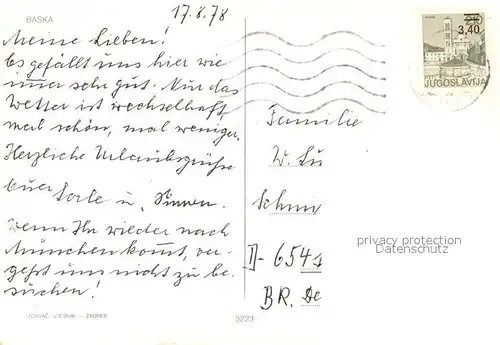 BASKA
17.8.78
Meine Lieben!
Es gefällt uns hier wie
immer sehr gut. Nur das
Wetter ist wechselhaft,
mal schön, mal weniger.
Herzliche Urlaubsgrüße
Eure
u.
Wenn Ihr wieder nach
München kommt, ver-
geßt uns nicht zu be-
suchen!
IZDAVAČ »VJESNIK« — ZAGREB
3223
3,40
JUGOSLAVIJA
Familie
W. Lu
Schm
privacy protection
Datenschutz
D-654
BR. De